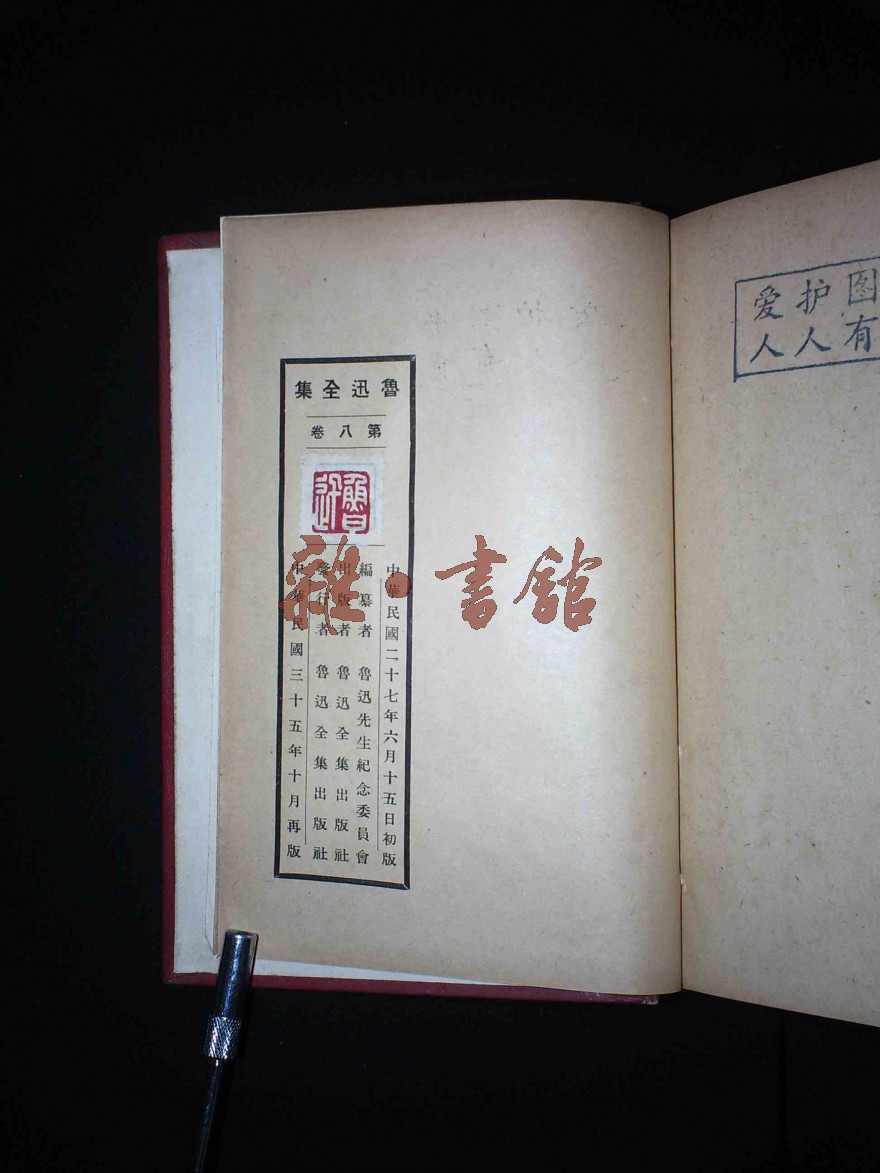 魯迅全集
第八卷
魯迅
中華民國二十七年六月十五日初版
編纂者 魯迅先生紀念委員會
出版者 魯迅全集出版社
發行者 魯迅全集出版社
中華民國三十五年十月再版
雜·書館
爱护图
人人有